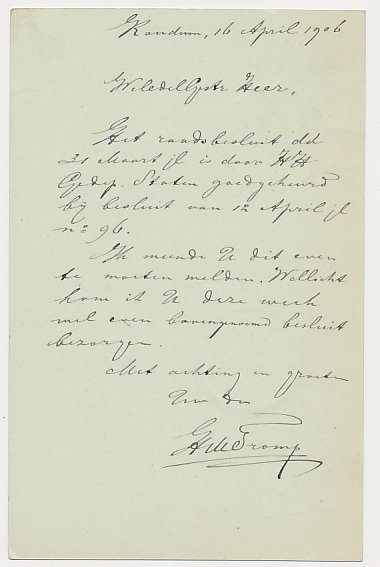 Randum, 16 April 1906
WelEdelGestr Heer,
Het raadsbesluit dd
31 Maart jl is door HH
Gedep. Staten goedgekeurd
bij besluit van 12 April jl
no 96.
Ik meende U dit even
te moeten melden. Wellicht
kom ik U deze week
wel even bovengenoemd besluit
bezorgen.
Met achting en groeten
Uw dr
Tromp